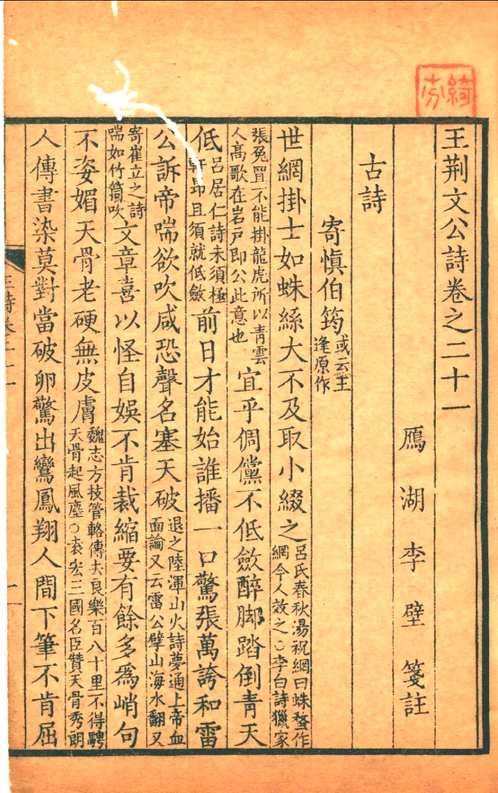 王荆文公詩卷之二十一
鴈湖李壁箋註
古詩
寄愼伯筠或云王逢原作
世網掛士如蛛絲大不及取小綴之呂氏春秋湯祝網曰蛛蝥作網令人效之○李白詩獵家
張兔罝不能掛龍虎所以青雲人高歌在岩戸即公此意也宜乎倜儻不低歛醉脚踏倒青天
低呂居仁詩未須極軒昂且須就低歛前日才能始誰播一口驚張萬誇和雷
公訴帝喘欲吹咸恐聲名塞天破退之陸渾山火詩夢通上帝血面論又云雷公擘山海水翻又
寄崔立之詩喘如竹筩吹文章喜以怪自娛不肯裁縮要有餘多爲峭句
不姿媚天骨老硬無皮膚魏志方技管輅傳夫良樂百八十里不得騁天骨起風塵○袁宏三國名臣贊天骨秀朗
人傳書染莫對當破卵驚出鸞鳳翔人間下筆不肯屈